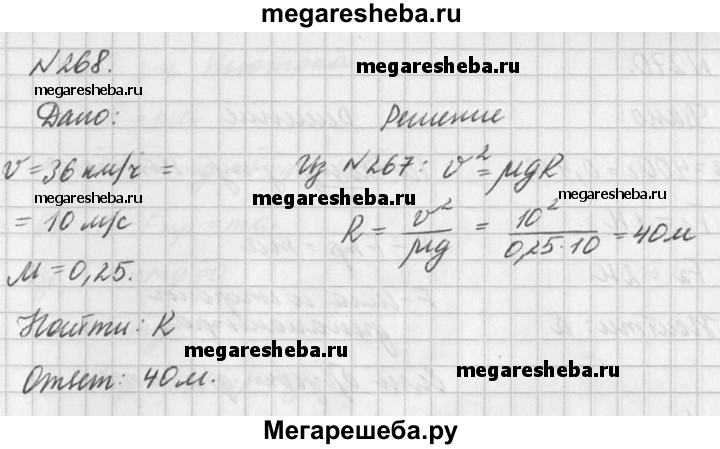 megaresheba.ru
N268.
megaresheba.ru
megaresheba.ru
Дано:
Решение
v = 36 км/ч =
Из N267: v² = μgR
megaresheba.ru
megaresheba.ru
= 10 м/с
R = v²/μg = 10²/0,25·10 = 40м
μ = 0,25.
Найти: R
megaresheba.ru
megaresheba.ru
Ответ: 40м.
Мегарешеба.ру